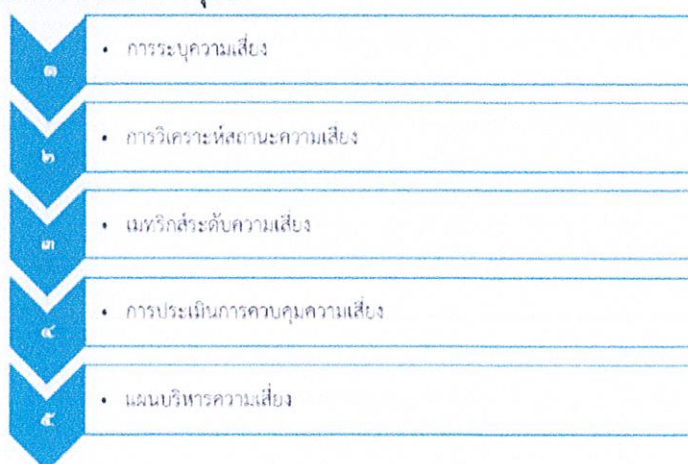 ๑
• การระบุความเสี่ยง
๒
• การวิเคราะห์สถานะความเสี่ยง
๓
• เมทริกส์ระดับความเสี่ยง
๔
• การประเมินการควบคุมความเสี่ยง
๕
• แผนบริหารความเสี่ยง